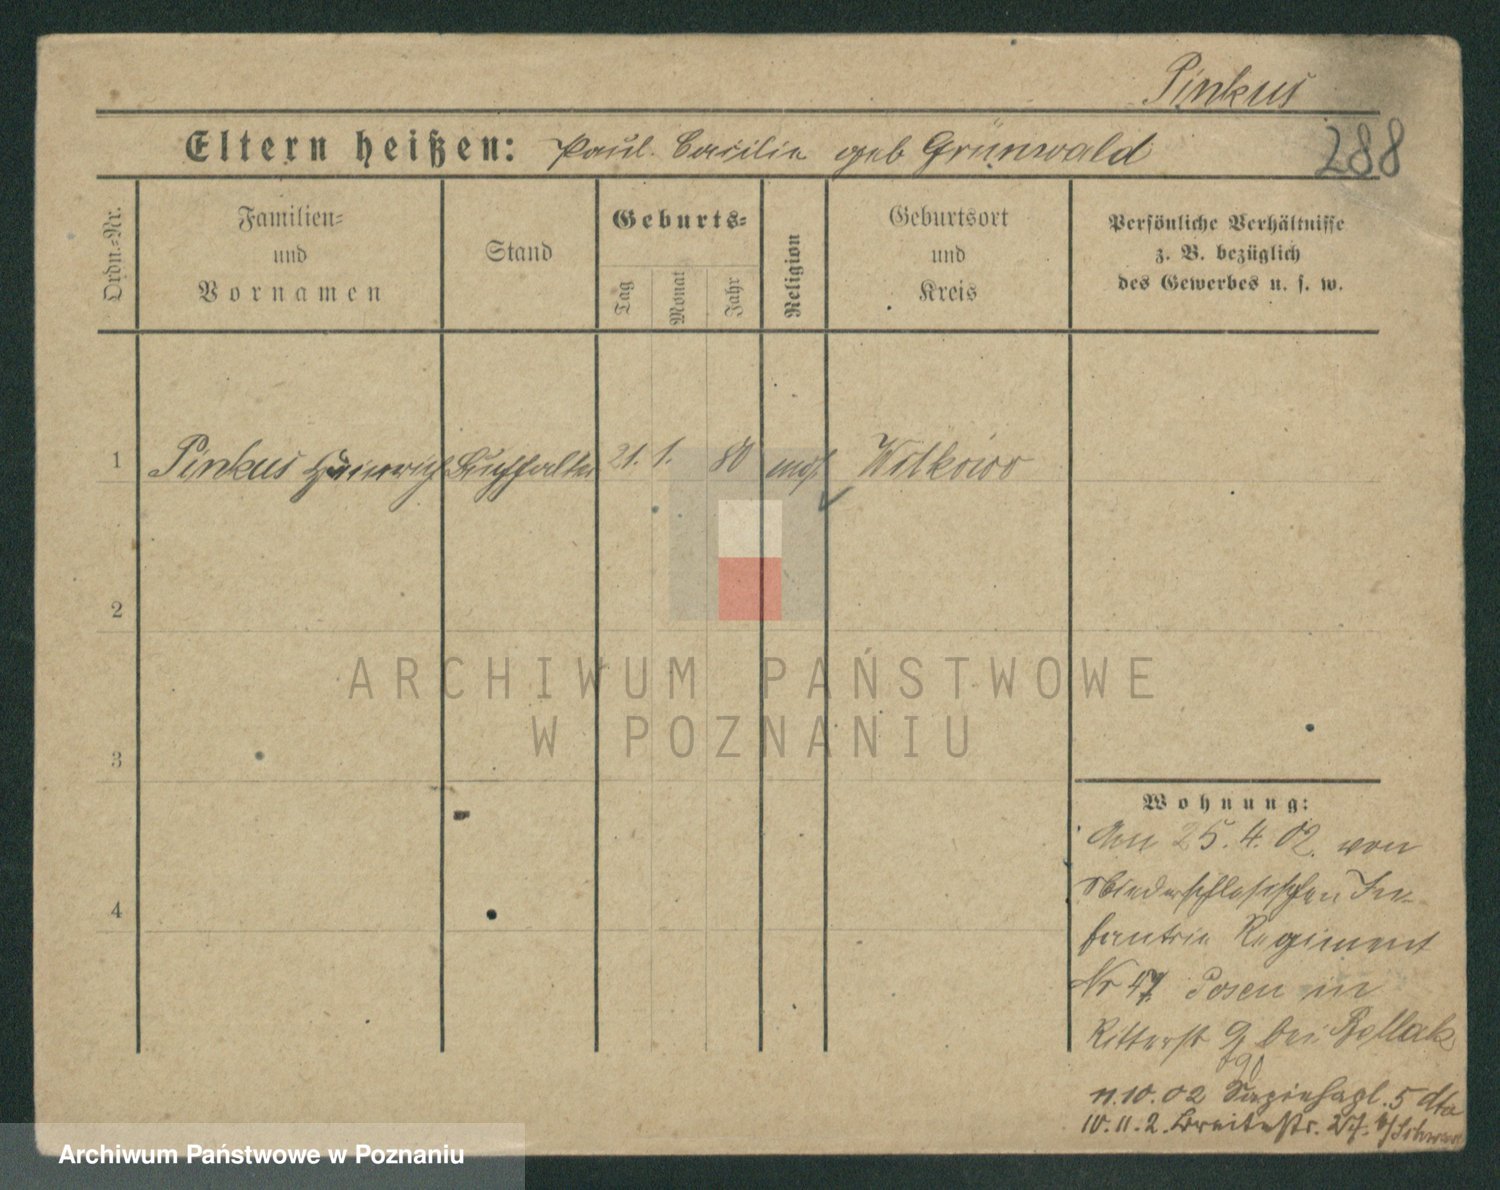 Pinkus
Eltern heißen: Paul. Cacilie geb Grünwald
288
Ordn.-Nr.
Familien-
und
Vornamen
Stand
Geburts-
Tag
Monat
Jahr
Religion
Geburtsort
und
Kreis
Persönliche Verhältnisse
z. B. bezüglich
des Gewerbes u. s. w.
1 Pinkus Heinrich Buchhalter 21. 1. 80 mos. Witkowo
2
3
4
ARCHIWUM PAŃSTWOWE
W POZNANIU
Wohnung:
Am 25.4.02. von
Niederschlesischen In-
fantrie Regiment
Nr 47 Posen in
Ritterstr 9 bei
11.10.02 5 dto
10.11.2. Breitestr.
Archiwum Państwowe w Poznaniu